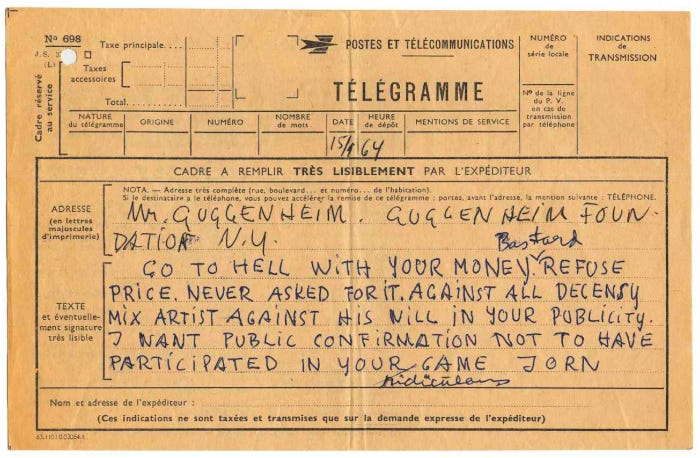 No 698
J. S.
(L)
Cadre réservé au service
Taxe principale....
Taxes accessoires
Total..........
POSTES ET TÉLÉCOMMUNICATIONS
TÉLÉGRAMME
NUMÉRO de série locale
No de la ligne du P. V. en cas de transmission par téléphone
INDICATIONS de TRANSMISSION
NATURE du télégramme
ORIGINE
NUMÉRO
NOMBRE de mots
DATE
HEURE de dépôt
MENTIONS DE SERVICE
15/1 64
CADRE A REMPLIR TRÈS LISIBLEMENT PAR L'EXPÉDITEUR
ADRESSE (en lettres majuscules d'imprimerie)
NOTA. — Adresse très complète (rue, boulevard... et numéro... de l'habitation).
Si le destinataire a le téléphone, vous pouvez accélérer la remise de ce télégramme : portez, avant l'adresse, la mention suivante : TÉLÉPHONE.
Mr. GUGGENHEIM. GUGGENHEIM FOUN-
DATION N.Y.
Bastard
TEXTE et éventuellement signature très lisible
GO TO HELL WITH YOUR MONEY. REFUSE
PRICE. NEVER ASKED FOR IT. AGAINST ALL DECENSY
MIX ARTIST AGAINST HIS WILL IN YOUR PUBLICITY.
I WANT PUBLIC CONFIRMATION NOT TO HAVE
PARTICIPATED IN YOUR GAME JORN
Ridiculous
Nom et adresse de l'expéditeur :
(Ces indications ne sont taxées et transmises que sur la demande expresse de l'expéditeur)